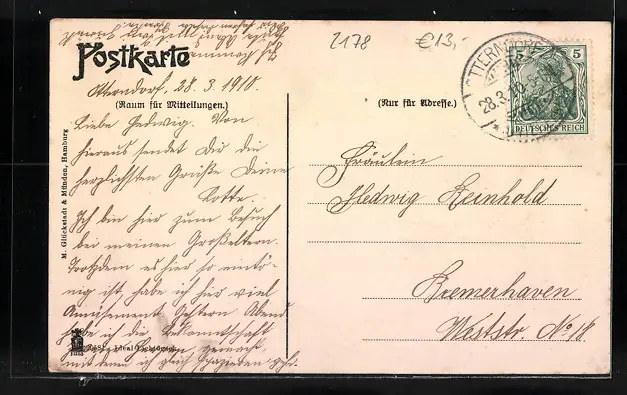 2178
€13,-
Postkarte
Otterndorf, 28. 3. 1910.
(Raum für Mitteilungen.)
Liebe Hedwig. Von
hieraus sendet Dir die
herzlichsten Grüße Deine
Lotte.
Ich bin hier zum Besuch
bei meinen Großeltern.
Trotzdem es hier so eintö-
nig ist, habe ich hier viel
Amüsement. Gestern Abend
habe ich die Bekanntschaft
gemacht
mit dem ich gleich spazieren
M. Glückstadt & Münden, Hamburg
(Nur für Adresse.)
OTTERNDORF
28.3.10
5
DEUTSCHES REICH
Fräulein
Hedwig Reinhold
Bremerhaven
Weststr. No 18.